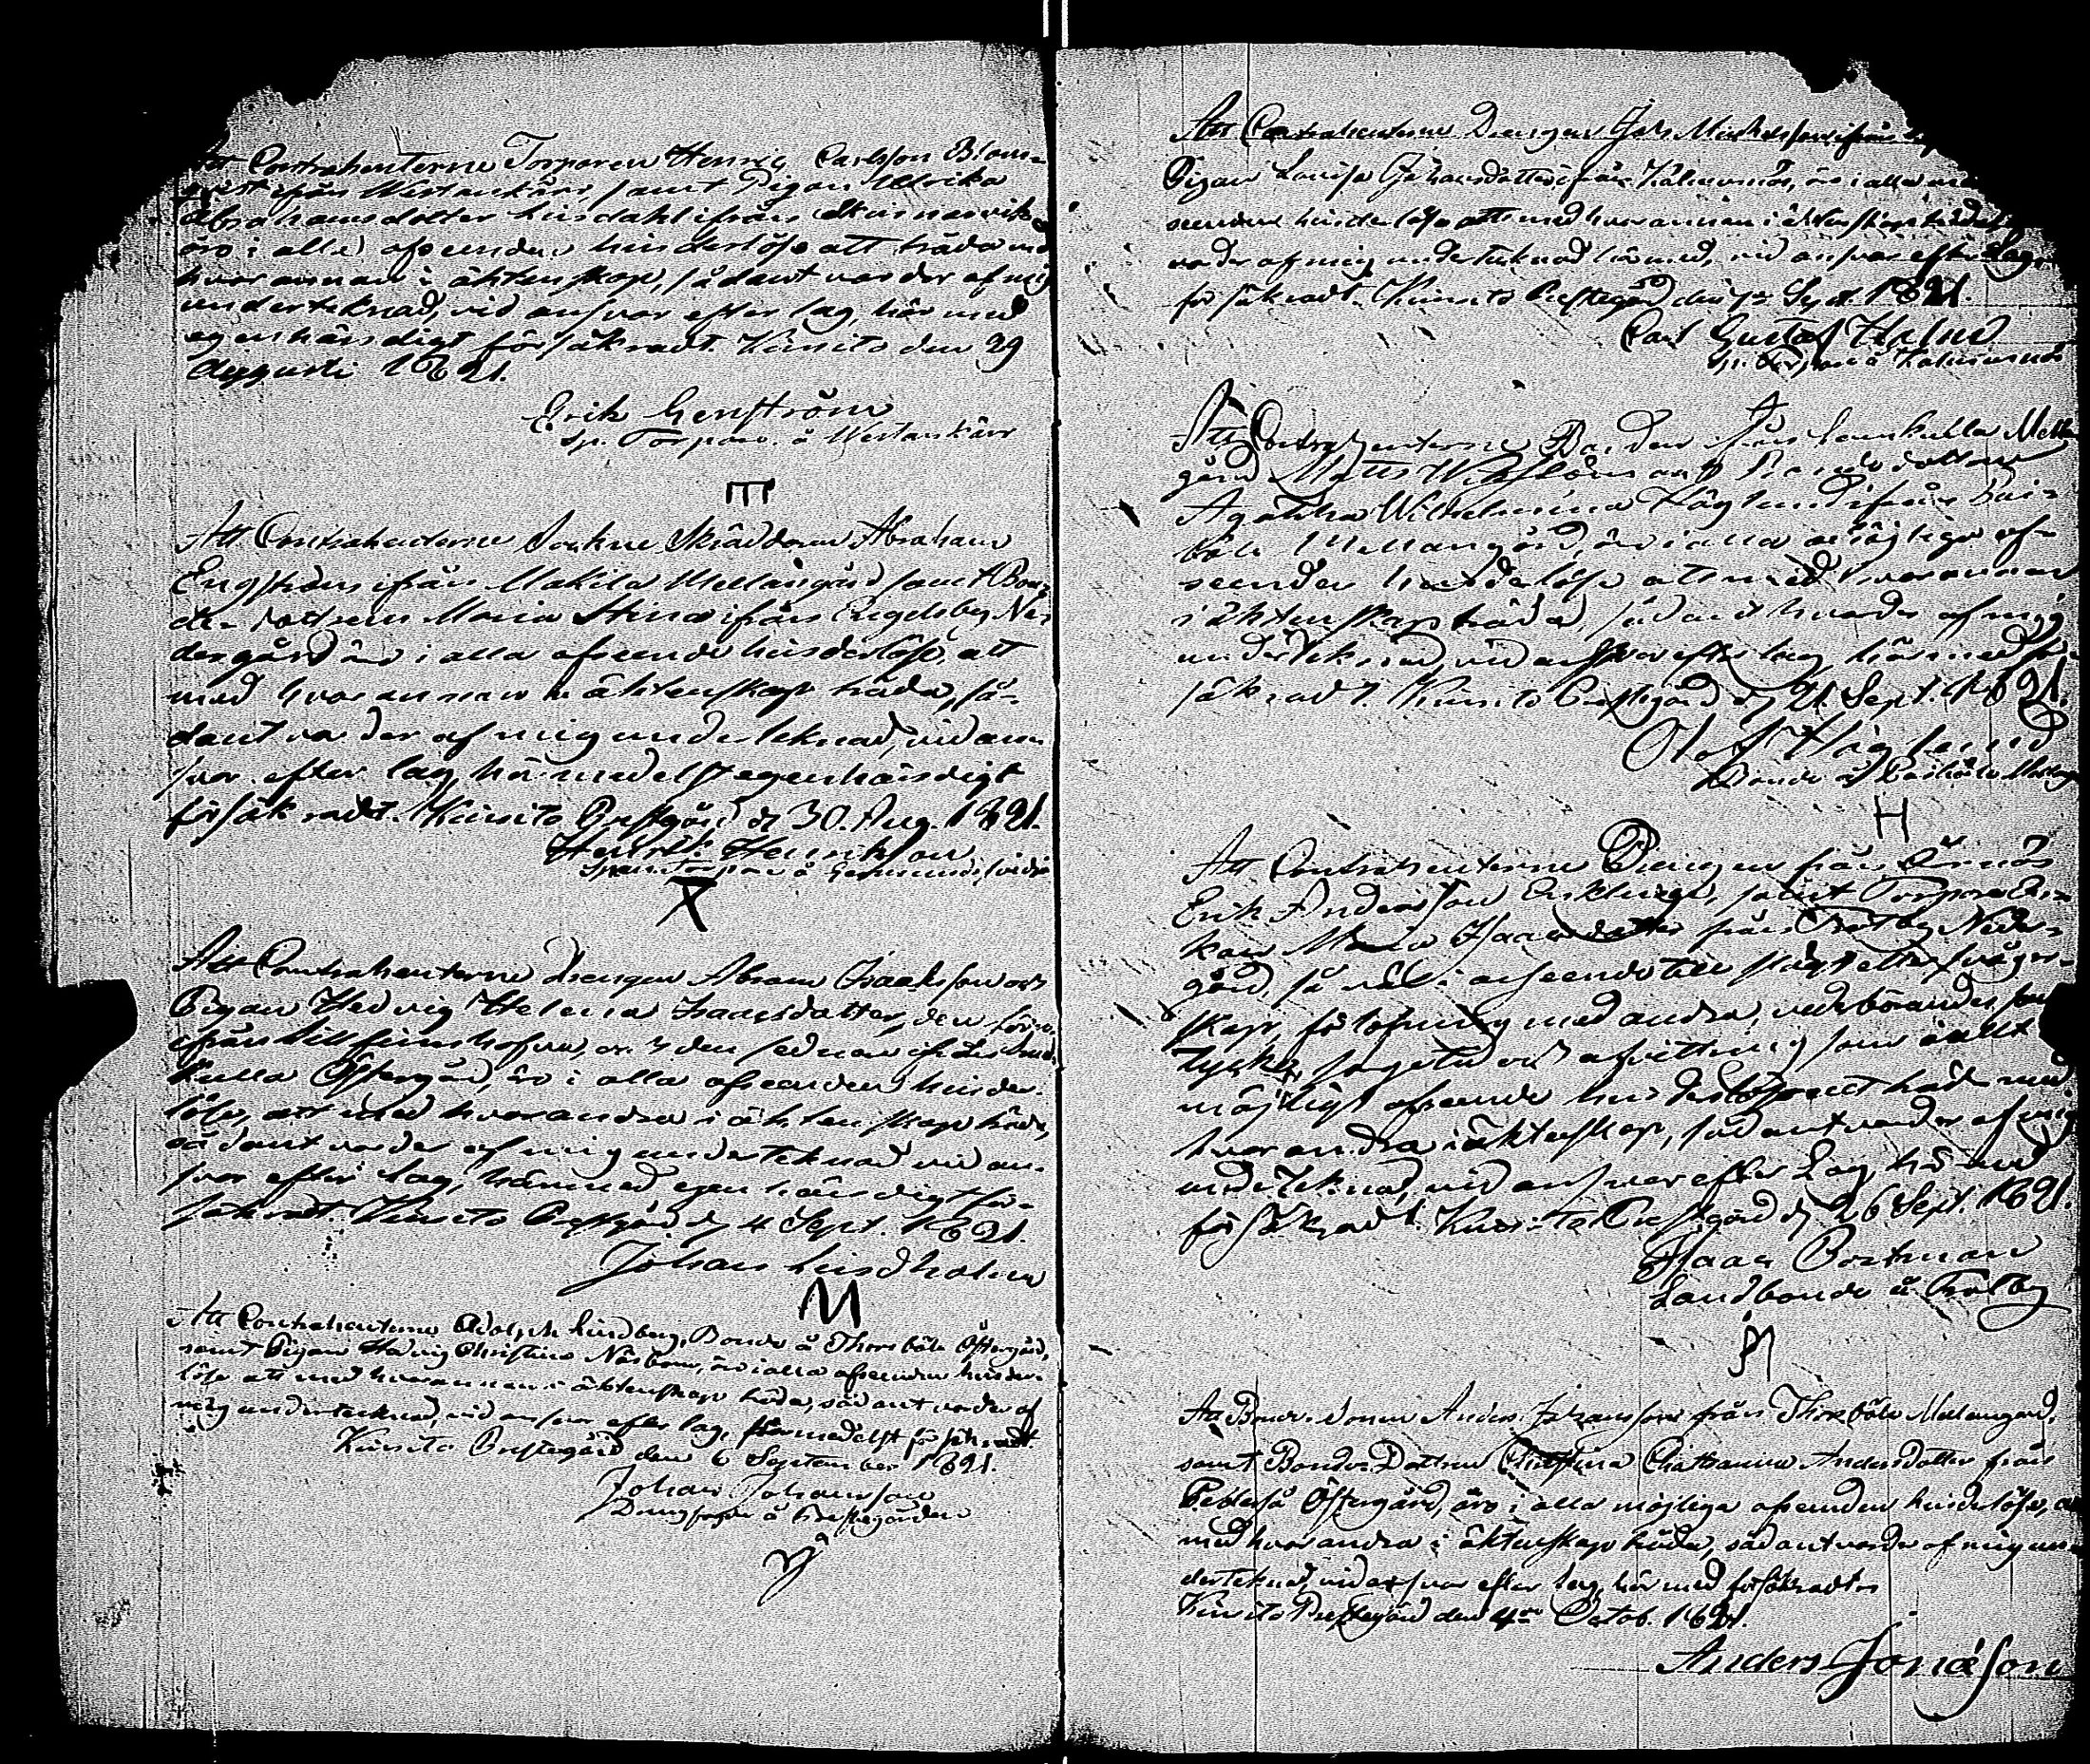 Att Contrahenterne Torparen Henric Carlsson Blom-
qvist ifrån Westankärr, samt Pigan Ulrika
Abrahamsdotter Lindahl ifrån
äro i alla afseenden hinderlöse att träda med
hvarannan i äktenskap, sådant varder af mig
undertecknad, vid ansvar efter lag, här med
egenhändigt försäkradt. Kimito den 29
Augusti 1821.
Erik Genström
sp. Torpare å Westankärr
Att Contrahenterne Sockne Skräddaren Abraham
Engström ifrån Makila Mellangård samt Bon-
de dottren Maria Stina ifrån Engelsby Ne-
dergård äro i alla afseende hinderlöse, att
med hvarannan i äktenskap träda, så-
dant varder af mig undertecknad, vid an-
svar efter lag, härmedelst egenhändigt
försäkradt. Kimito Prestgård d 30. Aug. 1821.
Henrik Henriksson
X
Att Contrahenterne drengen Abram Isaksson och
Pigan Hedvig Helena Isaacsdotter, den förra
ifrån och den sednare ifrån
kulla Östergård, äro i alla afseenden hinder-
löse, att med hvarandra i äktenskap träda,
sådant varder af mig undertecknad vid an-
svar efter lag, härmed egenhändigt för-
säkradt. Kimito Prestgård d 4 Sept. 1821.
Johan Lindholm
M
Att Contrahenterne Adolph Lindberg, Bonde å Thorsböle Östergård,
samt Pigan Hedvig Christina Näsbom, äro i alla afseenden hinder-
löse att med hvarannan i äktenskap träda, sådant varder af
mig undertecknad, vid ansvar efter lag, härmedelst försäkradt.
Kimito Prestegård den 6 September 1821.
Johan Johansson
å Prestegården
Att Contrahenterne Drengen Joh. Michelsson ifrån
Pigan Lovisa Johansdotter ifrån Kalmnäs, äro i alla
seenden hinderlöse att med hvarannan i äktenskap träda
varder af mig undertecknad härmed, vid ansvar efter Lag
försäkradt. Kimito Prestegård den 7 Sept. 1821.
Carl Gustaf
sp. Torpare å
Att Contrahenterne Bonden ifrån Lamkulla Mellan
gård Matts samt Bondedottren
Agatha Wilhelmina Höglund ifrån
böle Mellangård, äro i alla möjliga af-
seenden hinderlöse att med hvarannan
i äktenskap träda, sådant hvarder af mig
undertecknad, vid ansvar efter lag, härmed för-
säkradt. Kimito Prestgård d 21. Sept. 1821.
Olof Höglund
Bonde å
H
Att Contrahenterne Drengen från
Erik Andersson samt Torpare En-
kan Maria Isaacsdotter från Tralby Neder-
gård, så väl i anseende till slägt eller svåger-
skap, förlofning med andra, vederbörandes sam-
tycke, som i allt
möjligt afseende hinderlöse att träda med
hvarandra i äktenskap, sådant varder af mig
undertecknad, vid ansvar efter Lag, här med
försäkradt. Kimito Prestgård d 26 Sept. 1821.
Isaac Bostman
Landbonde å Tralby
Att Bonde-Sonen Anders Johansson från Thorsböle Mellangård,
samt Bonde-Dottren Christina Chatharina Andersdotter från
Pederså Östergård, äro i alla möjliga afseenden hinderlöse, at
med hvarandra i äktenskap träda, sådant varder af mig un-
dertecknad, vid ansvar efter lag, här med försäkradt
Kimito Prestegård den 4 Octob. 1821.
Anders Jonasson